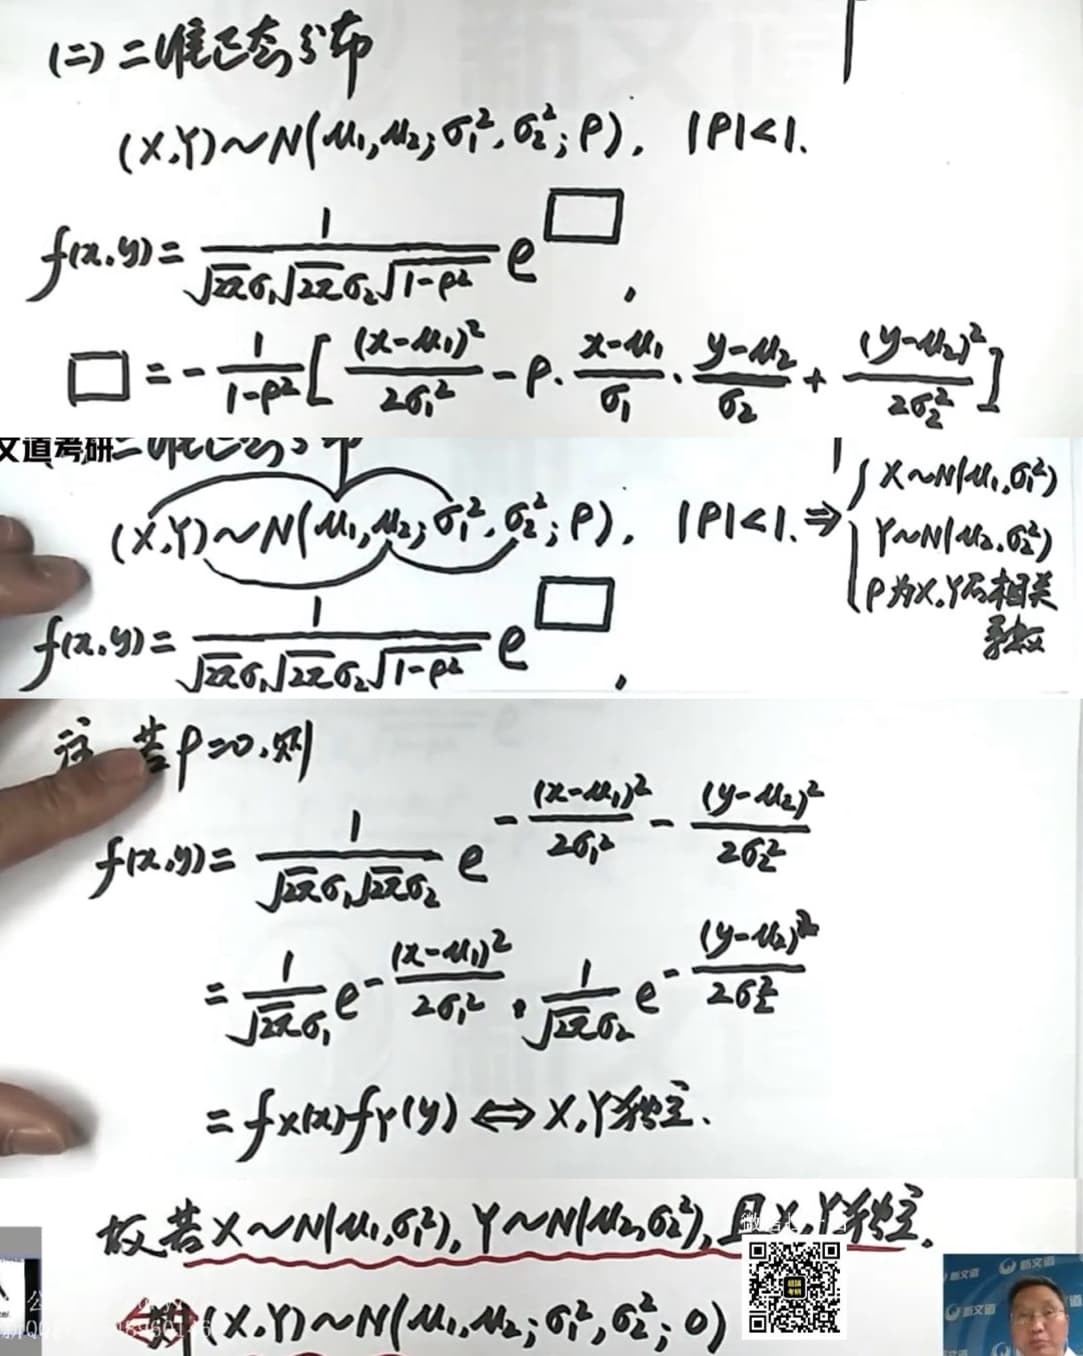 (二) 二维正态分布
(X,Y)~N(μ₁,μ₂;σ₁²,σ₂²;ρ), |ρ|<1.
f(x,y)= 1/(√2π σ₁ √2π σ₂ √1-ρ²) e^□ ,
□ = - 1/(1-ρ²) [ (x-μ₁)²/2σ₁² - ρ· (x-μ₁)/σ₁ · (y-μ₂)/σ₂ + (y-μ₂)²/2σ₂² ]
文道考研 二维正态分布
(X,Y)~N(μ₁,μ₂;σ₁²,σ₂²;ρ), |ρ|<1. ⇒ { X~N(μ₁,σ₁²)
Y~N(μ₂,σ₂²)
ρ为X,Y的相关
系数
f(x,y)= 1/(√2π σ₁ √2π σ₂ √1-ρ²) e^□ ,
注 若ρ=0,则
f(x,y)= 1/(√2π σ₁ √2π σ₂) e^ - (x-μ₁)²/2σ₁² - (y-μ₂)²/2σ₂²
= 1/(√2π σ₁) e^ - (x-μ₁)²/2σ₁² · 1/(√2π σ₂) e^ - (y-μ₂)²/2σ₂²
= f_X(x) f_Y(y) ⇔ X,Y独立.
故若X~N(μ₁,σ₁²), Y~N(μ₂,σ₂²), 且X,Y独立.
则(X,Y)~N(μ₁,μ₂;σ₁²,σ₂²;0)
新文道
新文道
新文道